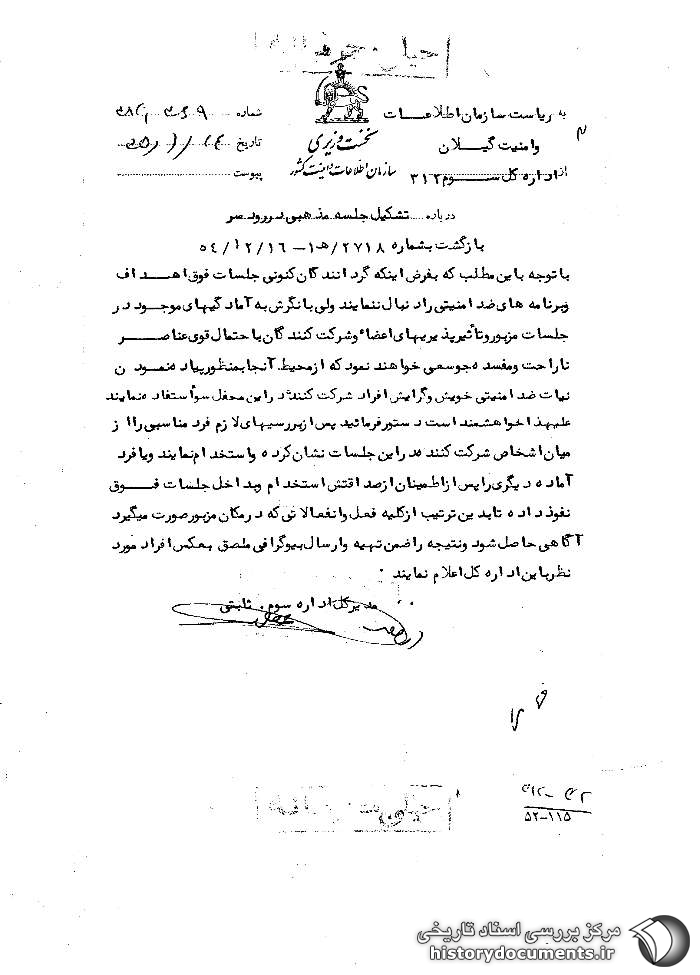 خیلی محرمانه
به ریاست سازمان اطلاعات
و امنیت گیلان
از اداره کل سوم ۳۱۲
نخست وزیری
سازمان اطلاعات و امنیت کشور
شماره
تاریخ
پیوست
درباره تشکیل جلسه مذهبی در رودسر
بازگشت بشماره ۲۷۱۸/ه‍۱ - ۵۴/۱۲/۱۶
با توجه باین مطلب که بفرض اینکه گردانندگان کنونی جلسات فوق اهداف
وبرنامه های ضد امنیتی را دنبال ننمایند ولی بانگرش به آمادگیهای موجود در
جلسات مزبور و تأثیر پذیریهای اعضاء و شرکت کنندگان با حتمال قوی عناصر
ناراحت ومفسده جوسعی خواهند نمود که از محیط آنجا بمنظور پیاده نمودن
نیات ضد امنیتی خویش وگرایش افراد شرکت کننده در این محفل سوأ استفاده نمایند
علیهذا خواهشمند است دستور فرمائید پس از بررسیهای لازم فرد مناسبی را از
میان اشخاص شرکت کننده در این جلسات نشان کرده واستخدام نمایند ویا فرد
آماده دیگری را پس از اطمینان از صداقتش استخدام وبداخل جلسات فوق
نفوذ داده تا بدین ترتیب از کلیه فعل وانفعالاتی که در مکان مزبور صورت میگیرد
آگاهی حاصل شود ونتیجه را ضمن تهیه وارسال بیوگرافی ملصق بعکس افراد مورد
نظر باین اداره کل اعلام نمایند .
مدیر کل اداره سوم . ثابتی
۵۲-۱۱۵
مرکز بررسی اسناد تاریخی
historydocuments.ir